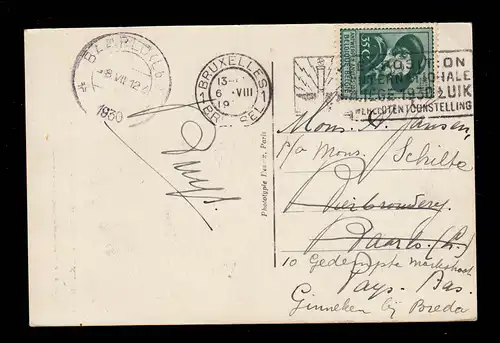 BAARLO (Lb.)
8 VII 12
1930
BRUXELLES 1
13-
6 VIII
19
BRUSSEL
35c
EXPOSITION
INTERNATIONALE
LIEGE-1930-LUIK
WERELDTENTOONSTELLING
Phototypie Paris
Mons. H. Jansen,
p/a Mons. Schilte
Bierbrouwery
Baarlo (L.)
10 Gedempte Markstraat
Pays-Bas.
Ginneken bij Breda